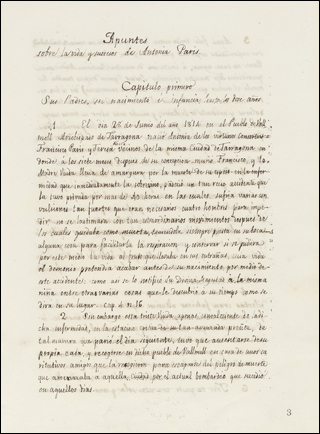 Apuntes
sobre la vida y sucesos de Antonia París.
Capítulo primero
Sus Padres, su nacimiento e infancia hasta los dos años.
1 El día 28 de Junio del año 1813 en el Pueblo de Vall-
moll Arzobispado de Tarragona nació Antonia de los virtuosos consortes
Francisco París y Teresa vecinos de la misma Ciudad de Tarragona en
donde a los siete meses después de su concepción, murió Francisco, y la
Madre Viuda llena de amargura por la muerte de su esposo en la enfer-
medad que inmediatamente la sobrevino, padeció un tan recio accidente que
la tuvo privada por mas de dos horas en las cuales, sufría varias con-
vulsiones tan fuertes que eran necesarios cuatro hombres para impe-
dir no se lastimara con tan extraordinarios movimientos después de
los cuales quedaba como muerta, teniendola siempre puesta en su boca
alguna cosa para facilitarla la respiración y conservar si se pudiera
por este medio la vida al feto que llevaba en sus entrañas, cuya vida
el demonio pretendía acabar antes de su nacimiento por medio de
este accidente, como así se lo notificó su Divina Magestad a la misma
niña entre otras varias cosas que le descubrió a su tiempo como se
dirá en su lugar. cap. 4 n. 16.
2. Sin embargo esta triste Viuda apenas convaleciente de di-
cha enfermedad, en la estación
tal manera que parió el día siguiente, tuvo que ausentarse de su
propia casa, y recogerse en dicho pueblo de Vallmoll en casa de unos ca-
ritativos amigos que la recogieron para escaparse del peligro de muerte
que amenazaba a aquella Ciudad por el actual bombardeo que sucedió
en aquellos días.
3